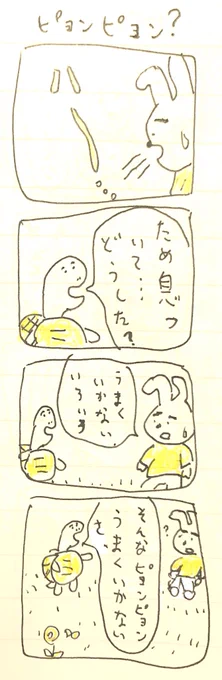 ピョンピョン?
ため息つ
いて…
どうした?
うまく
いかない
いろいろ
?
そんなピョンピョン
うまくいかない
さ、